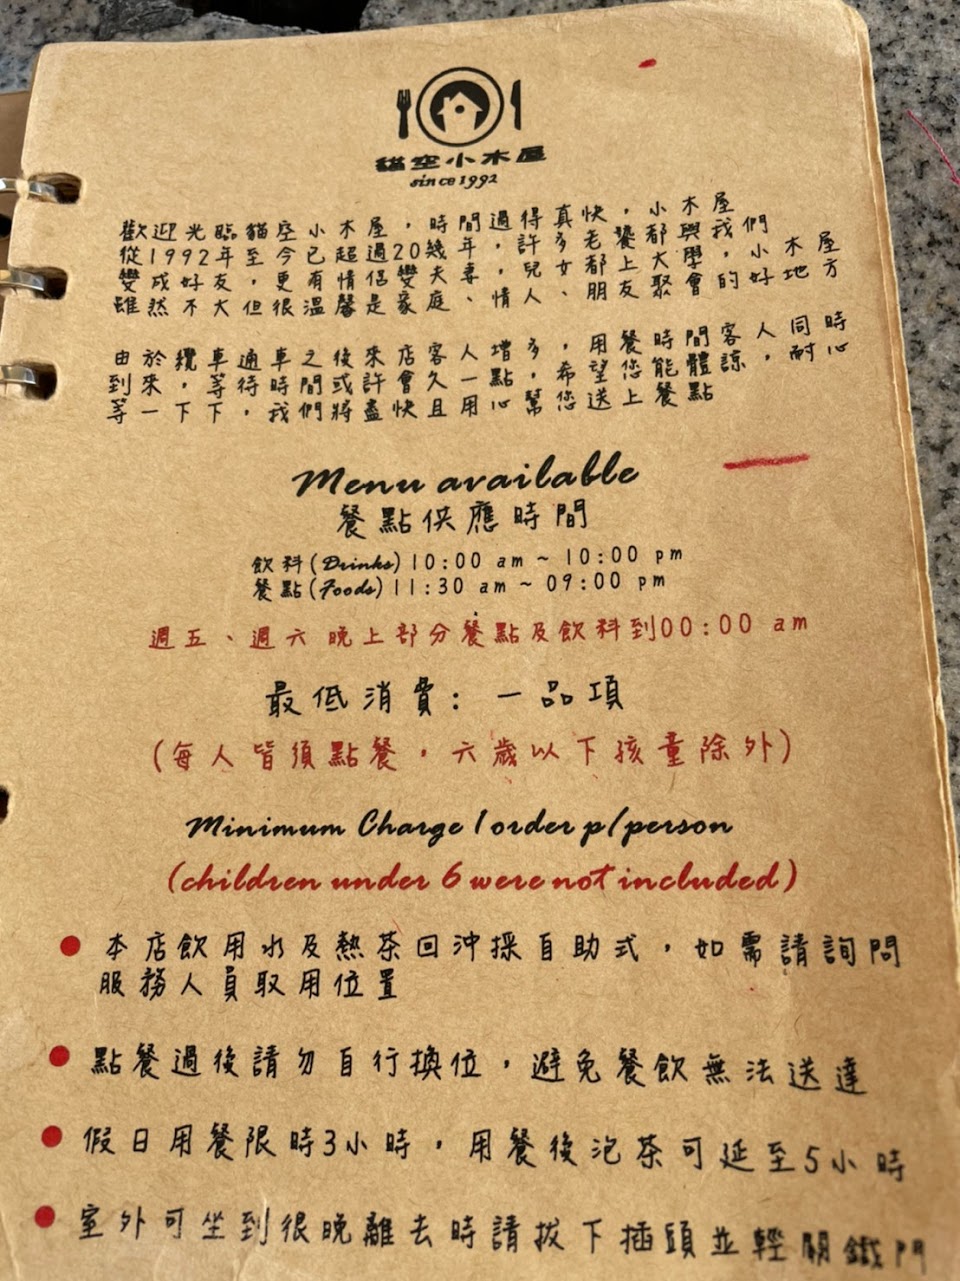 貓空小木屋
since 1992
歡迎光臨貓空小木屋，時間過得真快，小木屋
從1992年至今已超過20幾年，許多老饕都與我們
變成好友，更有情侶變夫妻，兒女都上大學，小木屋
雖然不大但很溫馨是家庭、情人、朋友聚會的好地方
由於纜車通車之後來店客人增多，用餐時間客人同時
到來，等待時間或許會久一點，希望您能體諒，耐心
等一下下，我們將盡快且用心幫您送上餐點
Menu available
餐點供應時間
飲料(Drinks)10:00 am ~ 10:00 pm
餐點(Foods)11:30 am ~ 09:00 pm
週五、週六晚上部分餐點及飲料到00:00 am
最低消費: 一品項
(每人皆須點餐，六歲以下孩童除外)
Minimum Charge 1 order p/person
(children under 6 were not included)
本店飲用水及熱茶回沖採自助式，如需請詢問
服務人員取用位置
點餐過後請勿自行換位，避免餐飲無法送達
假日用餐限時3小時，用餐後泡茶可延至5小時
室外可坐到很晚離去時請拔下插頭並輕關鐵門